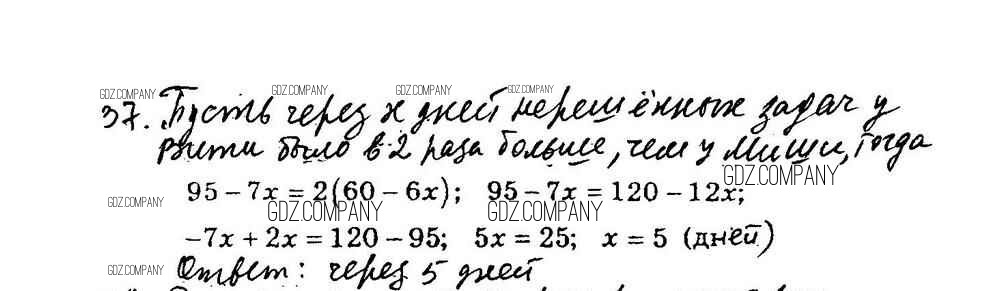 GDZ.COMPANY GDZ.COMPANY GDZ.COMPANY GDZ.COMPANY
37. Пусть через х дней нерешённых задач у
Вити было в 2 раза больше, чем у Миши, тогда
GDZ.COMPANY
GDZ.COMPANY 95 – 7x = 2(60 – 6x); 95 – 7x = 120 – 12x;
GDZ.COMPANY GDZ.COMPANY
–7x + 2x = 120 – 95; 5x = 25; x = 5 (дней)
GDZ.COMPANY Ответ: через 5 дней